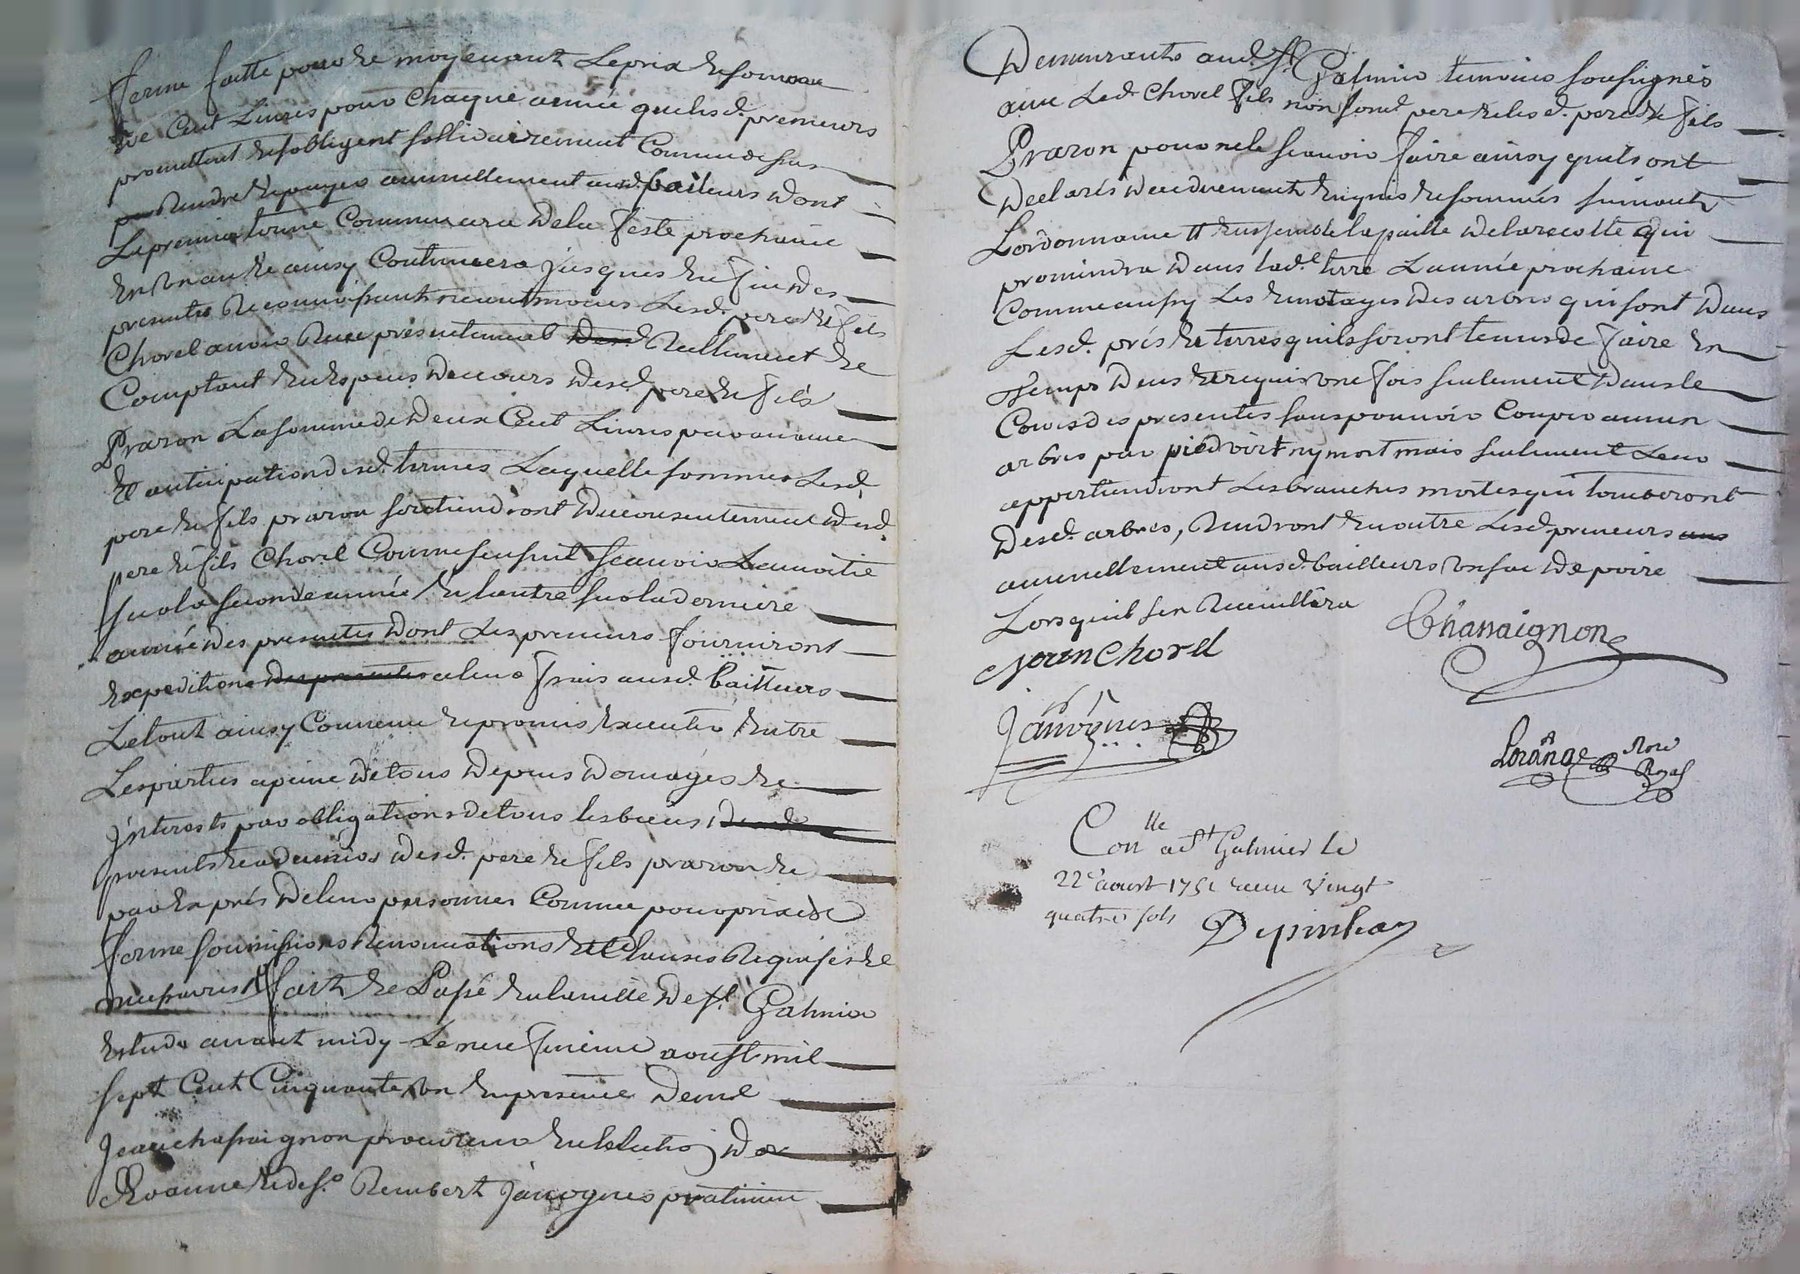 ferme faitte pour et moyenant le prix et somme
de Cent Livres pour Chaque année que lesd. preneurs
promettent et sobligent sollidairement Comme dessus
rendre et payer annuellement ausd. bailleurs dont
Le premier terme Commencera de la feste prochaine
en un an et ainsy Continuera jusques en fin des
presentes Reconnoissant neantmoins Lesd. pere et fils
Chorel avoir Receu presentement Reellement et
Comptant en especes de cours desd. pere et fils
Prazon La somme de deux Cent Livres par avance
et anticipation desd. termes Laquelle somme Lesd.
pere et fils prazon soutiendront du consentement desd.
pere et fils Chorel Comme sensuit scavoir La moitié
sur la seconde année et lautre sur la derniere
année des presentes dont Les preneurs fourniront
expedition des presentes a leurs frais ausd. bailleurs
Le tout ainsy Convenu et promis executer entre
Les parties a peine de tous depens domages et
jnterests par obligation de tous les biens
presents et a venir desd. pere et fils prazon et
par exprés de leurs personnes Comme pour prix de
ferme soumissions Renonciations et Clauses Requises et
necessaires fait et Passé en la ville de st. Galmier
estude avant midy Le neufvieme aoust mil
sept Cent Cinquante un en presence de me.
Jean chassaignon procureur en lelection de
Roanne et de sr. Rembert Janvognes praticien
Demeurants aud. st. Galmier temoins sousignés
avec Led. Chorel fils non lond. pere et lesd. pere et fils
Prazon pour ne le scavoir faire ainsy quils ont
declarés deuement enquis et sommés suivant
Lordonnance # ensemble la paille de la recolte qui
proviendra dans lad.e terre Lannée prochaine
Comme aussy Les emotages des arbres qui sont dans
Lesd. prés et terres quils seront tenus de faire en
temps deus et requis une fois seulement dans le
Cours des presentes sans pouvoir Couper aucun
arbres par pied vert ny mort mais seulement Leur
appartiendront Les branches mortes qui tomberont
desd. arbres, Rendront en outre Lesd. preneurs
annuellement ausd. bailleurs un sac de poire
Lorsquil sen Recuillera
Chassaignon
Jean Chorel
Janvognes
Lorange Nore
Royal
Conlle a St Galmier le
22e aoust 1751 receu vingt
quatre sols